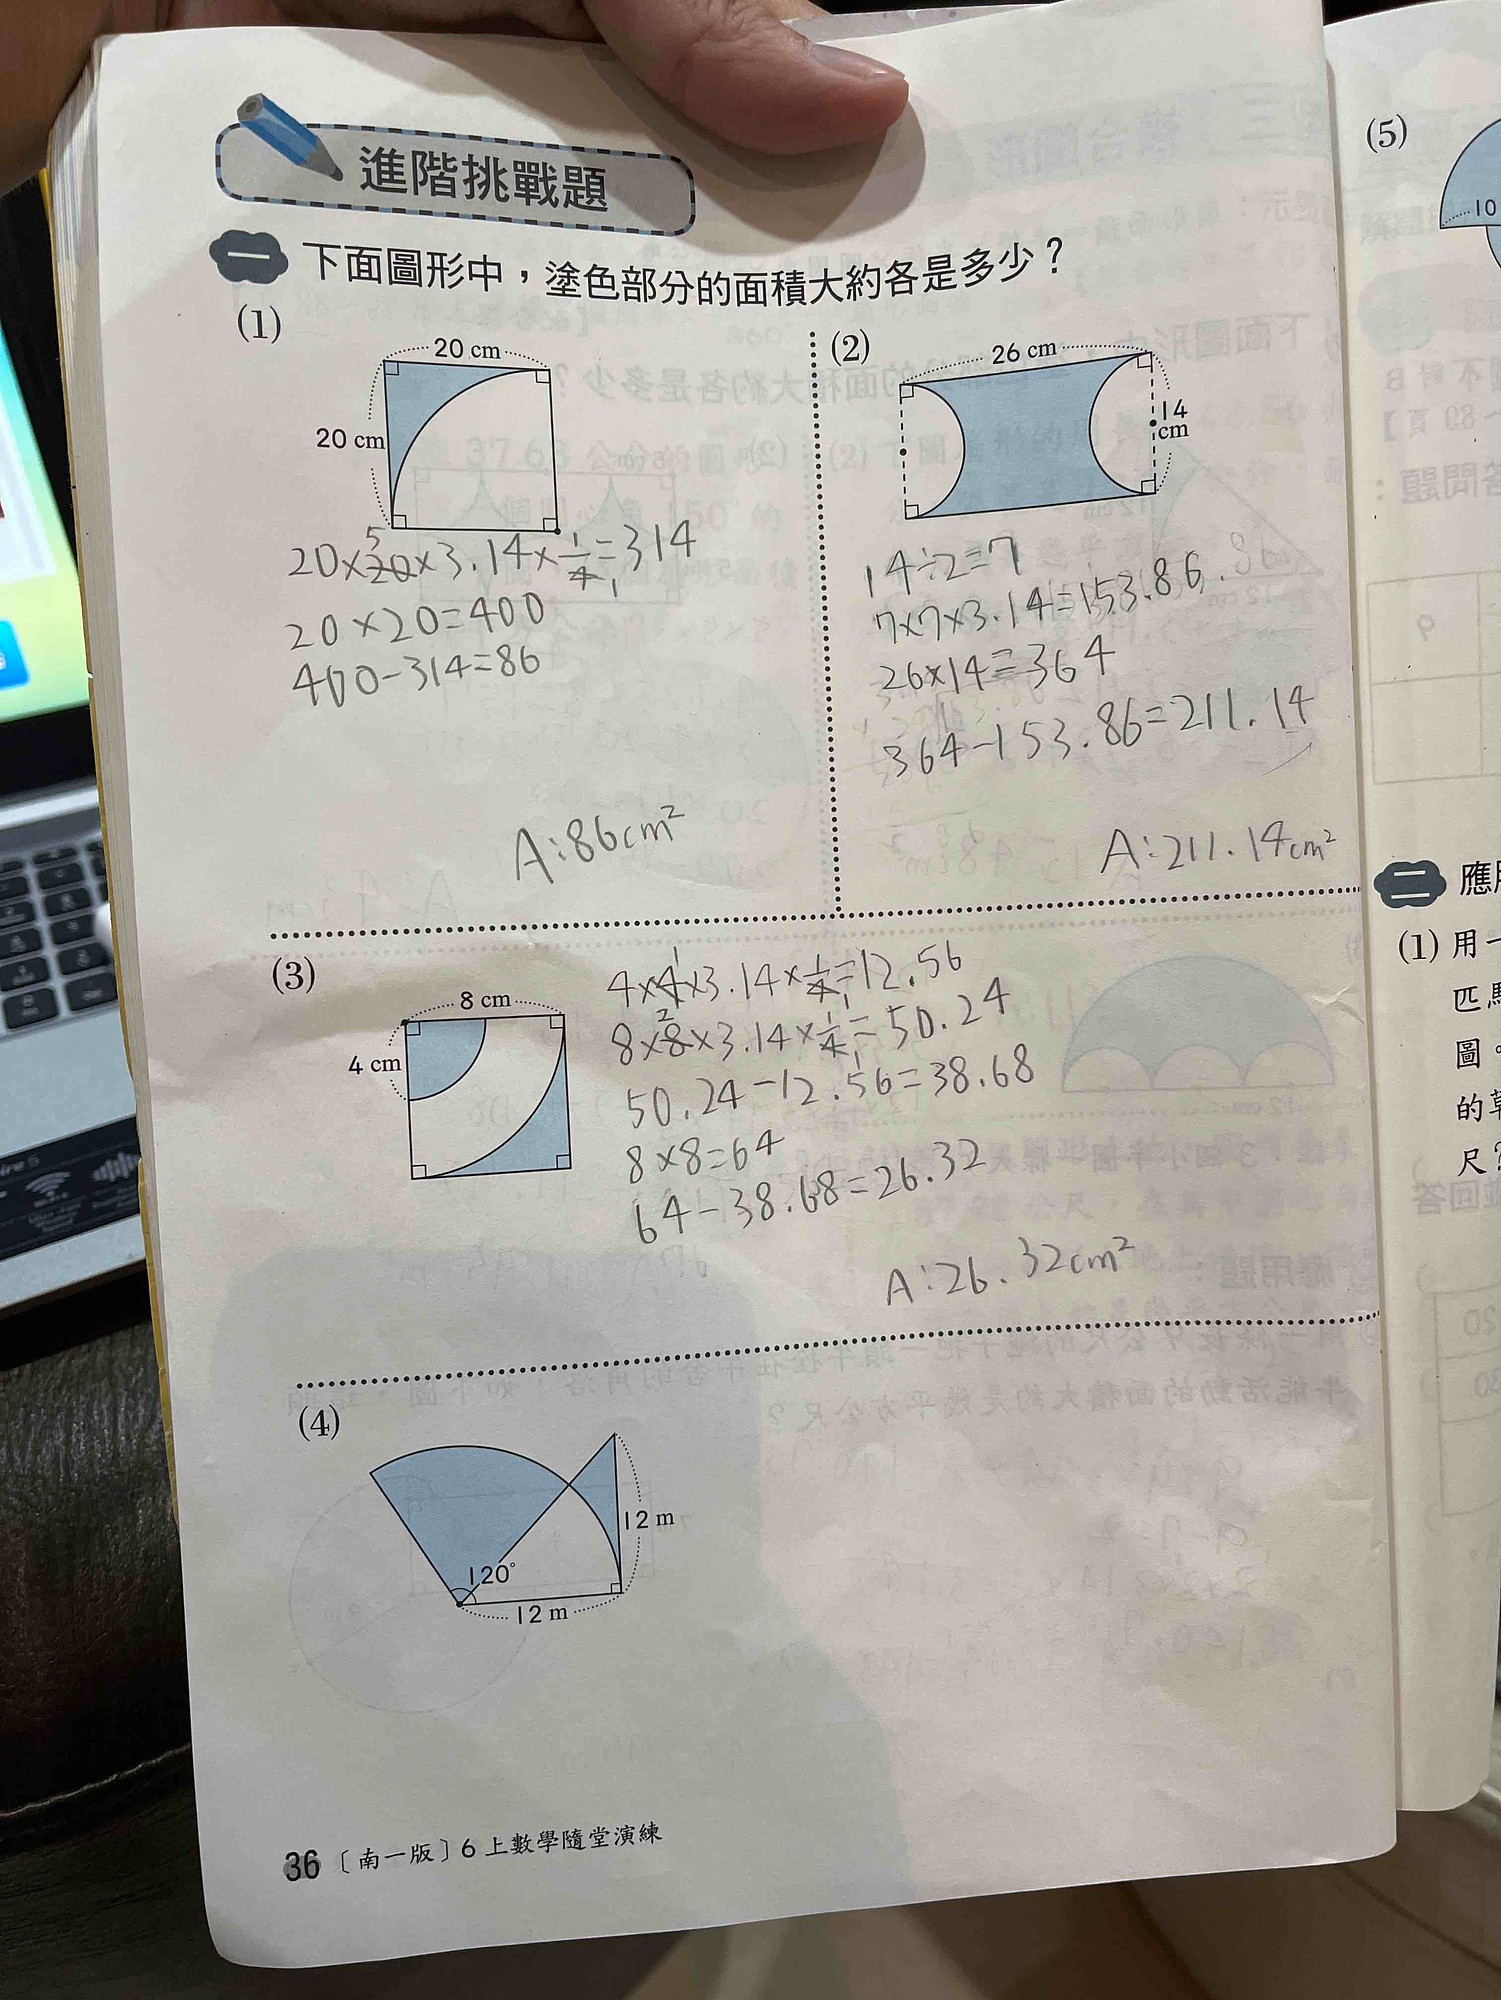 進階挑戰題
一 下面圖形中，塗色部分的面積大約各是多少？
(1)
20 cm
20 cm
20×20×3.14×1/4=314
5
1
20×20=400
400-314=86
A:86cm²
(2)
26 cm
14
cm
14÷2=7
7×7×3.14=153.86
26×14=364
364-153.86=211.14
A:211.14cm²
(3)
8 cm
4 cm
4×4×3.14×1/4=12.56
1
1
8×8×3.14×1/4=50.24
2
1
50.24-12.56=38.68
8×8=64
64-38.68=26.32
A:26.32cm²
(4)
12 m
120°
12 m
36〔南一版〕6 上數學隨堂演練
(5)
10
二 應
(1) 用一
圖。
的
尺？